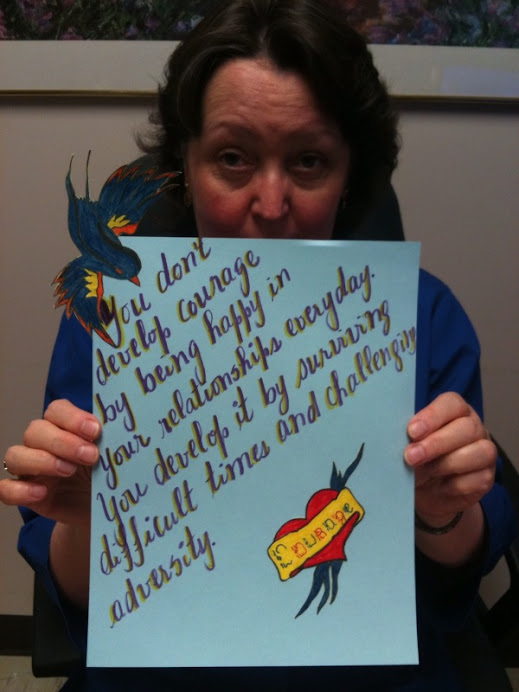 You don't
develop courage
by being happy in
your relationships everyday.
You develop it by surviving
difficult times and challenging
adversity.
COURAGE